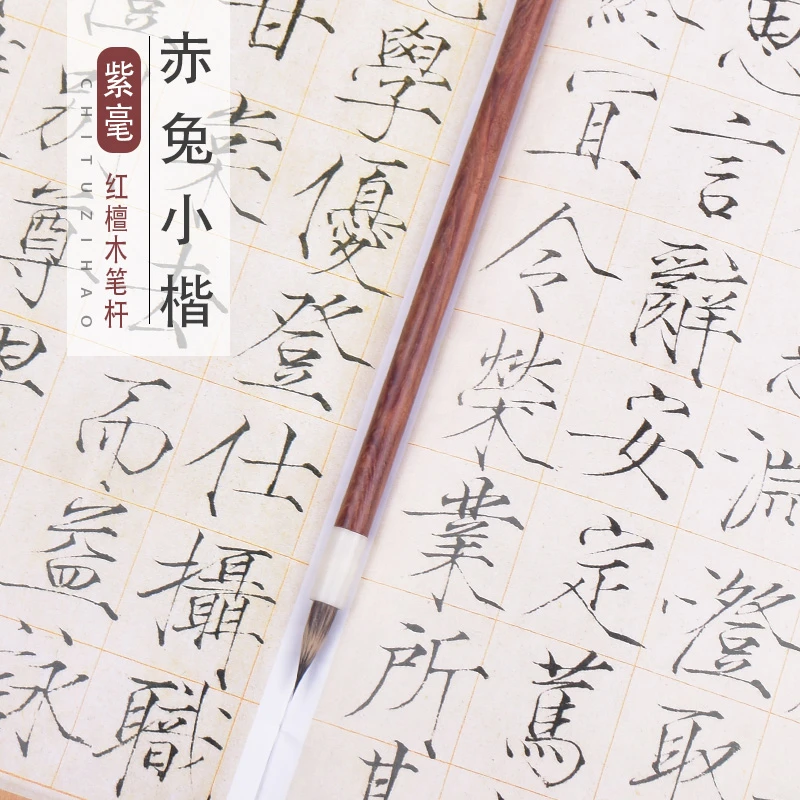 赤兔小楷
紫毫
红檀木笔杆
CHITUZIHAO
淵澄取
思言辭安定篤
終宜令榮業所
學優登仕攝職
甘棠去而益詠
別尊